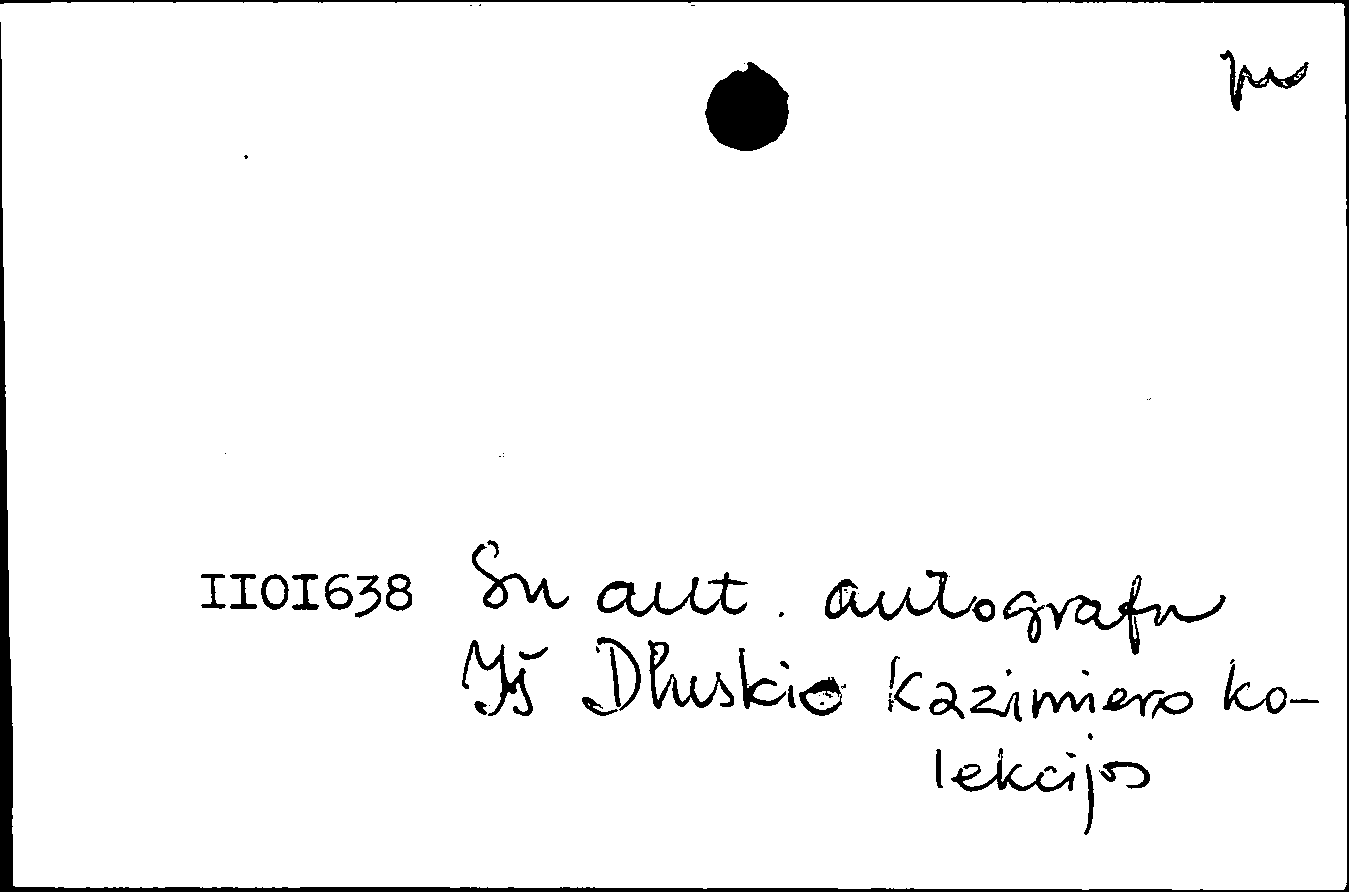 IIOI638 Su aut. autografu
Iš Dłuskio Kazimiero ko-
lekcijos